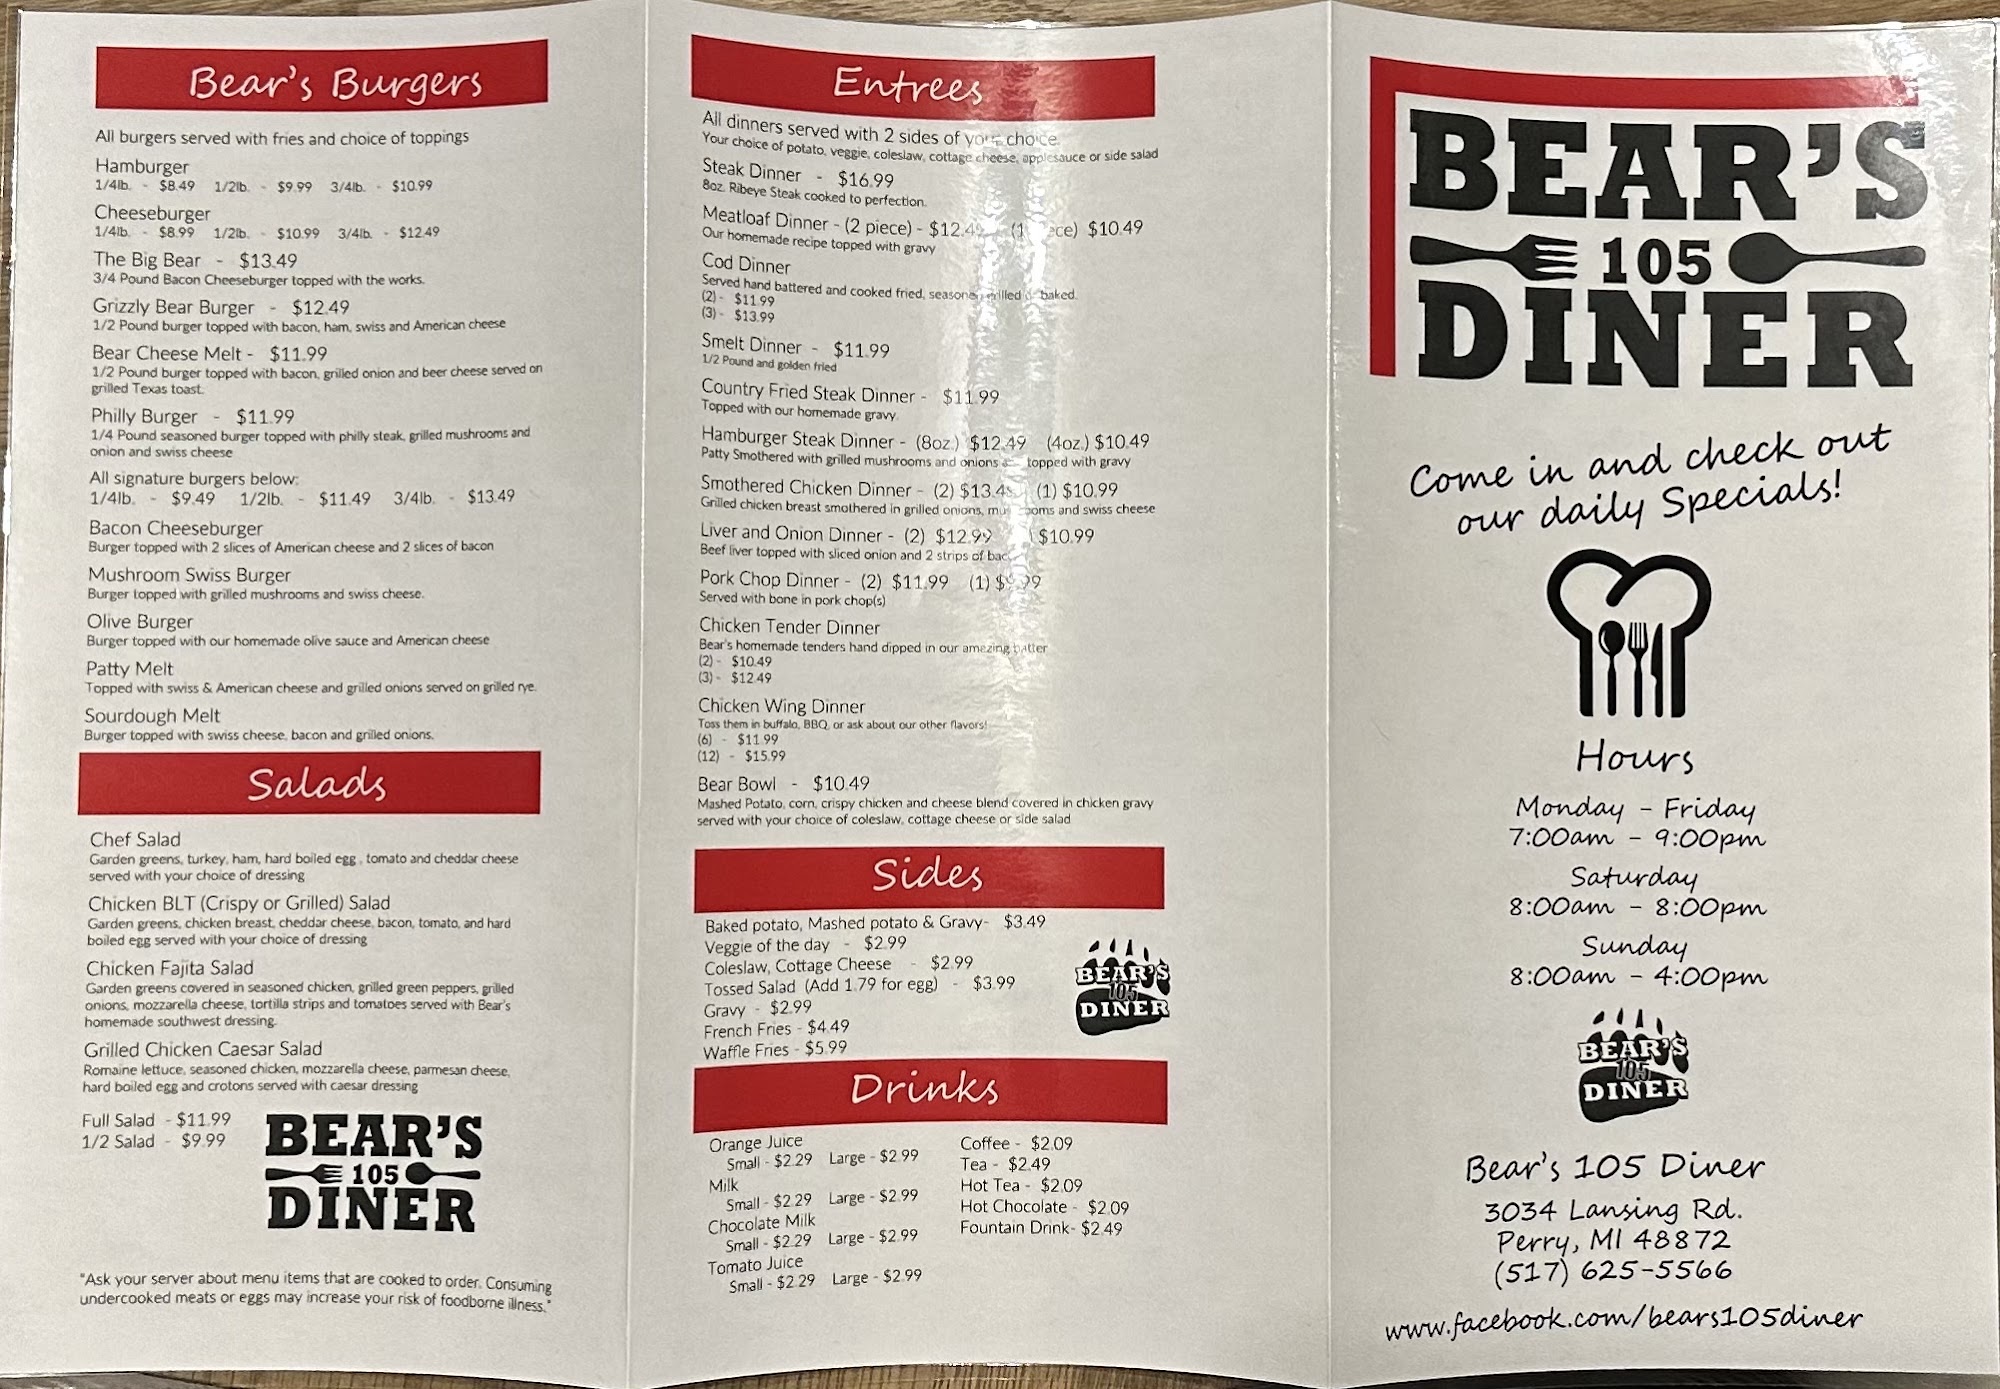 Bear's Burgers
All burgers served with fries and choice of toppings
Hamburger
1/4lb. - $8.49 1/2lb. - $9.99 3/4lb. - $10.99
Cheeseburger
1/4lb. - $8.99 1/2lb. - $10.99 3/4lb. - $12.49
The Big Bear - $13.49
3/4 Pound Bacon Cheeseburger topped with the works.
Grizzly Bear Burger - $12.49
1/2 Pound burger topped with bacon, ham, swiss and American cheese
Bear Cheese Melt - $11.99
1/2 Pound burger topped with bacon, grilled onion and beer cheese served on
grilled Texas toast.
Philly Burger - $11.99
1/4 Pound seasoned burger topped with philly steak, grilled mushrooms and
onion and swiss cheese
All signature burgers below:
1/4lb. - $9.49 1/2lb. - $11.49 3/4lb. - $13.49
Bacon Cheeseburger
Burger topped with 2 slices of American cheese and 2 slices of bacon
Mushroom Swiss Burger
Burger topped with grilled mushrooms and swiss cheese.
Olive Burger
Burger topped with our homemade olive sauce and American cheese
Patty Melt
Topped with swiss & American cheese and grilled onions served on grilled rye.
Sourdough Melt
Burger topped with swiss cheese, bacon and grilled onions.
Salads
Chef Salad
Garden greens, turkey, ham, hard boiled egg , tomato and cheddar cheese
served with your choice of dressing
Chicken BLT (Crispy or Grilled) Salad
Garden greens, chicken breast, cheddar cheese, bacon, tomato, and hard
boiled egg served with your choice of dressing
Chicken Fajita Salad
Garden greens covered in seasoned chicken, grilled green peppers, grilled
onions, mozzarella cheese, tortilla strips and tomatoes served with Bear's
homemade southwest dressing.
Grilled Chicken Caesar Salad
Romaine lettuce, seasoned chicken, mozzarella cheese, parmesan cheese,
hard boiled egg and crotons served with caesar dressing
Full Salad - $11.99
1/2 Salad - $9.99
BEAR'S
105
DINER
"Ask your server about menu items that are cooked to order. Consuming
undercooked meats or eggs may increase your risk of foodborne illness."
Entrees
All dinners served with 2 sides of your choice.
Your choice of potato, veggie, coleslaw, cottage cheese, applesauce or side salad
Steak Dinner - $16.99
8oz. Ribeye Steak cooked to perfection.
Meatloaf Dinner - (2 piece) - $12.49 (1 piece) $10.49
Our homemade recipe topped with gravy
Cod Dinner
Served hand battered and cooked fried, seasoned grilled or baked.
(2) - $11.99
(3) - $13.99
Smelt Dinner - $11.99
1/2 Pound and golden fried
Country Fried Steak Dinner - $11.99
Topped with our homemade gravy.
Hamburger Steak Dinner - (8oz.) $12.49 (4oz.) $10.49
Patty Smothered with grilled mushrooms and onions topped with gravy
Smothered Chicken Dinner - (2) $13.49 (1) $10.99
Grilled chicken breast smothered in grilled onions, mushrooms and swiss cheese
Liver and Onion Dinner - (2) $12.99 $10.99
Beef liver topped with sliced onion and 2 strips of bacon
Pork Chop Dinner - (2) $11.99 (1) $9.99
Served with bone in pork chop(s)
Chicken Tender Dinner
Bear's homemade tenders hand dipped in our amazing batter
(2) - $10.49
(3) - $12.49
Chicken Wing Dinner
Toss them in buffalo, BBQ, or ask about our other flavors!
(6) - $11.99
(12) - $15.99
Bear Bowl - $10.49
Mashed Potato, corn, crispy chicken and cheese blend covered in chicken gravy
served with your choice of coleslaw, cottage cheese or side salad
Sides
Baked potato, Mashed potato & Gravy- $3.49
Veggie of the day - $2.99
Coleslaw, Cottage Cheese - $2.99
Tossed Salad (Add 1.79 for egg) - $3.99
Gravy - $2.99
French Fries - $4.49
Waffle Fries - $5.99
BEAR'S
105
DINER
Drinks
Orange Juice
Small - $2.29 Large - $2.99
Milk
Small - $2.29 Large - $2.99
Chocolate Milk
Small - $2.29 Large - $2.99
Tomato Juice
Small - $2.29 Large - $2.99
Coffee - $2.09
Tea - $2.49
Hot Tea - $2.09
Hot Chocolate - $2.09
Fountain Drink- $2.49
BEAR'S
105
DINER
Come in and check out
our daily Specials!
Hours
Monday - Friday
7:00am - 9:00pm
Saturday
8:00am - 8:00pm
Sunday
8:00am - 4:00pm
BEAR'S
105
DINER
Bear's 105 Diner
3034 Lansing Rd.
Perry, MI 48872
(517) 625-5566
www.facebook.com/bears105diner